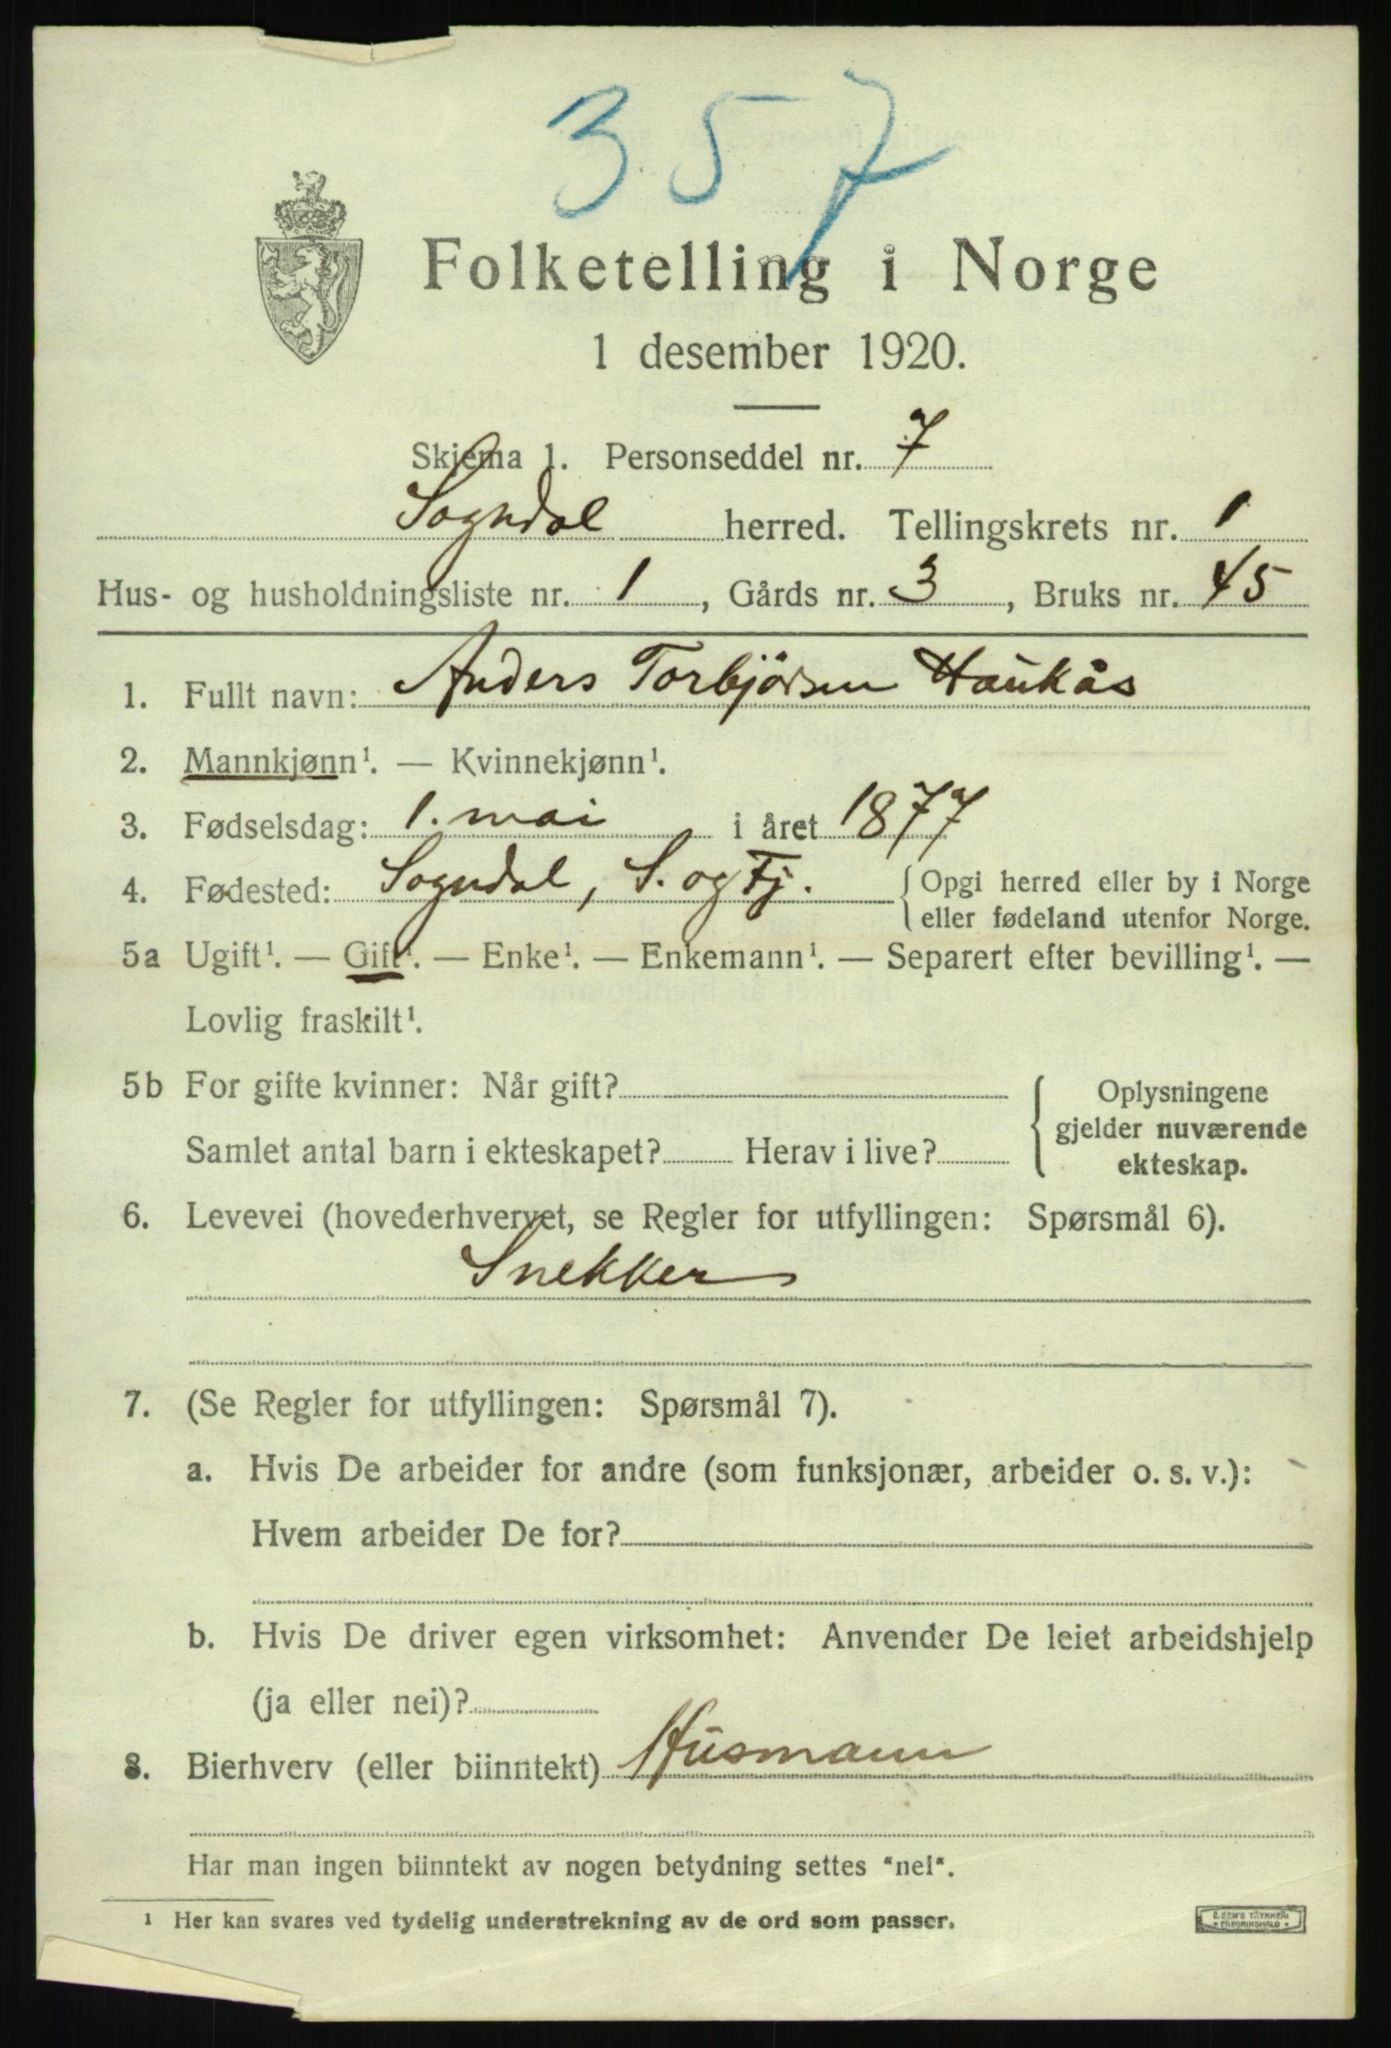 357
Folketelling i Norge
1 desember 1920.
Skjema 1. Personseddel nr. 7
Sogndal herred. Tellingskrets nr. 1
Hus- og husholdningsliste nr. 1, Gårds nr. 3, Bruks nr. 45
1. Fullt navn: Anders Torbjörsen Haukås
2. Mannkjønn¹. — Kvinnekjønn¹.
3. Fødselsdag: 1. mai i året 1877
4. Fødested: Sogndal, S. og Fj. { Opgi herred eller by i Norge
eller fødeland utenfor Norge.
5a Ugift¹. — Gift¹. — Enke¹. — Enkemann¹. — Separert efter bevilling¹. —
Lovlig fraskilt¹.
5b For gifte kvinner: Når gift? { Oplysningene
gjelder nuværende
Samlet antal barn i ekteskapet? Herav i live? ekteskap.
6. Levevei (hovederhvervet, se Regler for utfyllingen: Spørsmål 6).
Snekker
7. (Se Regler for utfyllingen: Spørsmål 7).
a. Hvis De arbeider for andre (som funksjonær, arbeider o. s. v.):
Hvem arbeider De for?
b. Hvis De driver egen virksomhet: Anvender De leiet arbeidshjelp
(ja eller nei)?
8. Bierhverv (eller biinntekt) Husmann
Har man ingen biinntekt av nogen betydning settes "nei".
¹ Her kan svares ved tydelig understrekning av de ord som passer.